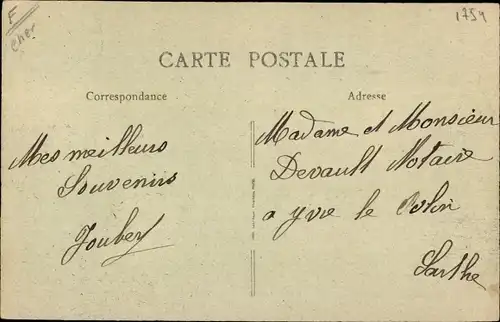 F
Cher
1754
CARTE POSTALE
Correspondance
Adresse
Mes meilleurs
Souvenirs
Joubert
Madame et Monsieur
Devault Notaire
a yvré le Polin
Sarthe